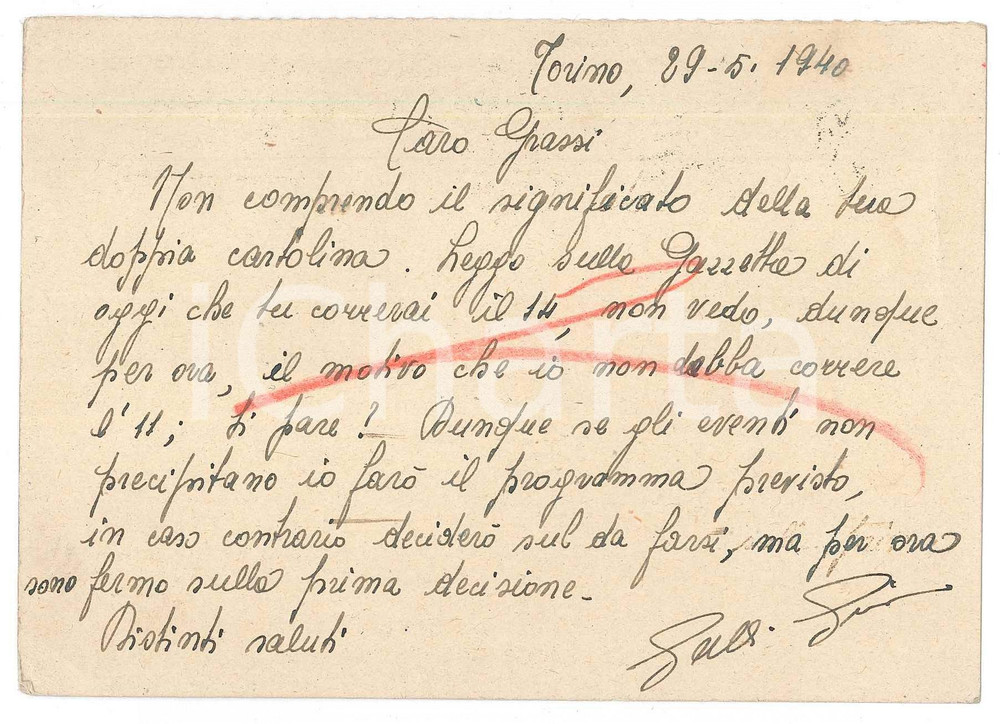 Torino, 29-5. 1940
Caro Grassi
Non comprendo il significato della tua
doppia cartolina. Leggo sulla Gazzetta di
oggi che tu correrai il 14, non vedo, dunque
per ora, il motivo che io non debba correre
l'11; ti pare? Dunque se gli eventi non
precipitano io farò il programma previsto,
in caso contrario deciderò sul da farsi, ma per ora
sono fermo sulla prima decisione.
Distinti saluti
Galli
iCharta